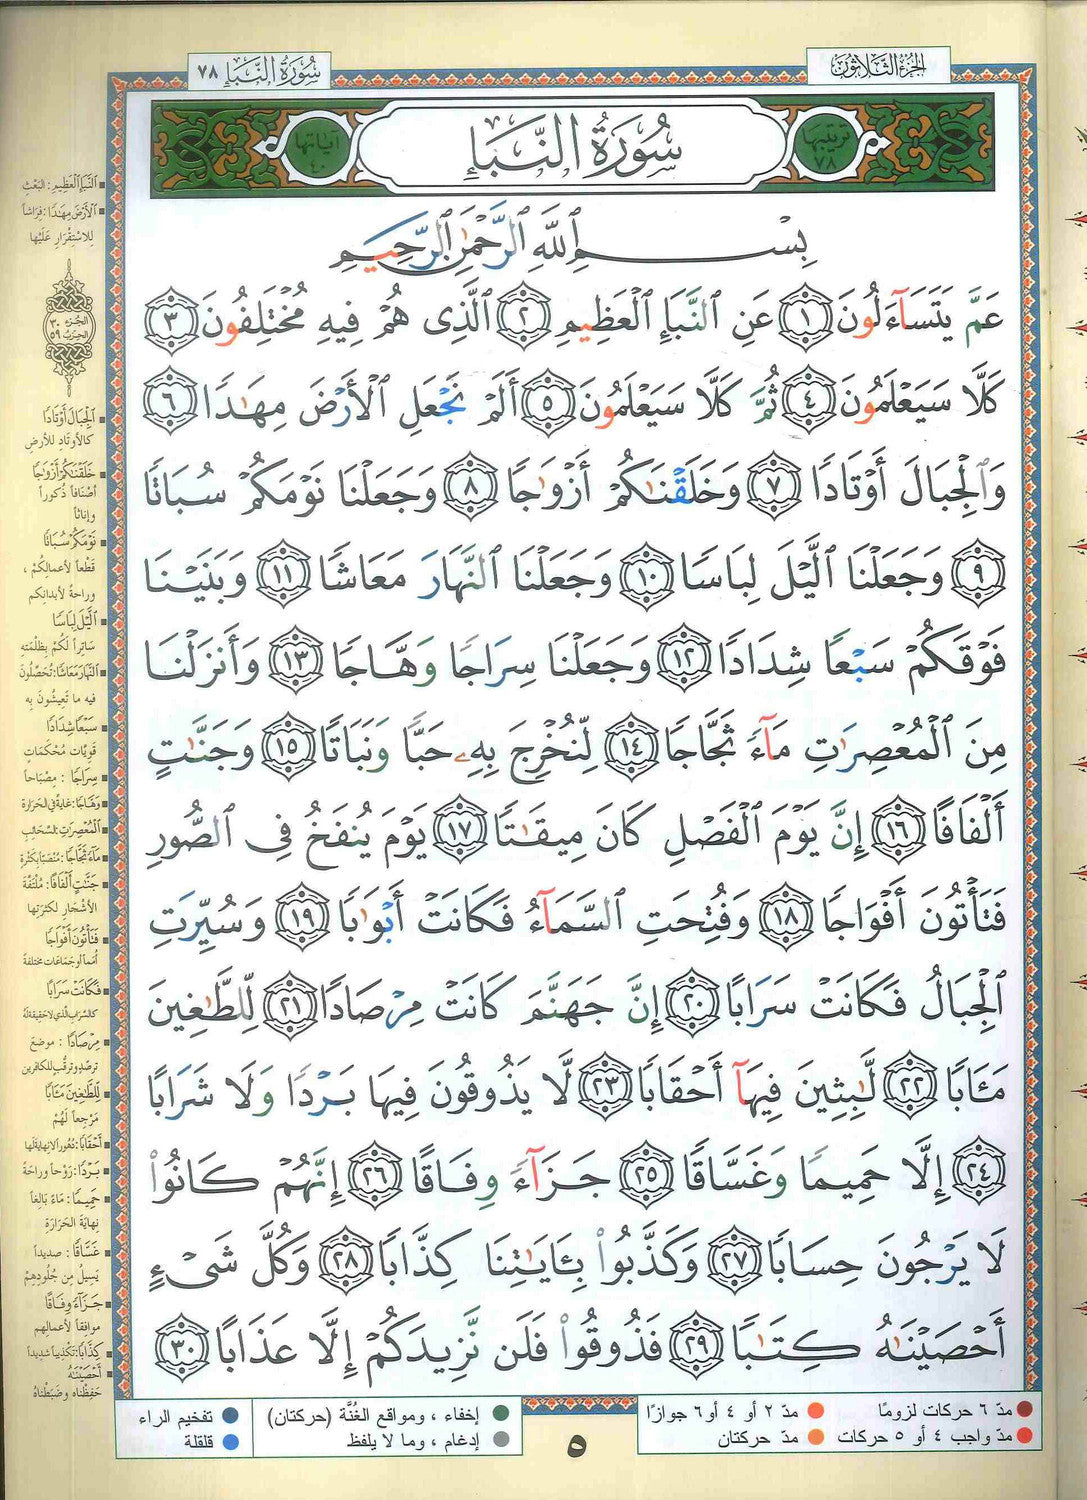 الجزء الثلاثون
سورة النبإ ٧٨
ترتيبها ٧٨
سُورَةُ النَّبَإِ
آياتها ٤٠
بِسْمِ ٱللَّهِ ٱلرَّحْمَٰنِ ٱلرَّحِيمِ
عَمَّ يَتَسَآءَلُونَ ١ عَنِ ٱلنَّبَإِ ٱلْعَظِيمِ ٢ ٱلَّذِى هُمْ فِيهِ مُخْتَلِفُونَ ٣
كَلَّا سَيَعْلَمُونَ ٤ ثُمَّ كَلَّا سَيَعْلَمُونَ ٥ أَلَمْ نَجْعَلِ ٱلْأَرْضَ مِهَٰدًا ٦
وَٱلْجِبَالَ أَوْتَادًا ٧ وَخَلَقْنَٰكُمْ أَزْوَٰجًا ٨ وَجَعَلْنَا نَوْمَكُمْ سُبَاتًا
٩ وَجَعَلْنَا ٱلَّيْلَ لِبَاسًا ١٠ وَجَعَلْنَا ٱلنَّهَارَ مَعَاشًا ١١ وَبَنَيْنَا
فَوْقَكُمْ سَبْعًا شِدَادًا ١٢ وَجَعَلْنَا سِرَاجًا وَهَّاجًا ١٣ وَأَنزَلْنَا
مِنَ ٱلْمُعْصِرَٰتِ مَآءً ثَجَّاجًا ١٤ لِّنُخْرِجَ بِهِۦ حَبًّا وَنَبَاتًا ١٥ وَجَنَّٰتٍ
أَلْفَافًا ١٦ إِنَّ يَوْمَ ٱلْفَصْلِ كَانَ مِيقَٰتًا ١٧ يَوْمَ يُنفَخُ فِى ٱلصُّورِ
فَتَأْتُونَ أَفْوَاجًا ١٨ وَفُتِحَتِ ٱلسَّمَآءُ فَكَانَتْ أَبْوَٰبًا ١٩ وَسُيِّرَتِ
ٱلْجِبَالُ فَكَانَتْ سَرَابًا ٢٠ إِنَّ جَهَنَّمَ كَانَتْ مِرْصَادًا ٢١ لِّلطَّٰغِينَ
مَـَٔابًا ٢٢ لَّٰبِثِينَ فِيهَآ أَحْقَابًا ٢٣ لَّا يَذُوقُونَ فِيهَا بَرْدًا وَلَا شَرَابًا
٢٤ إِلَّا حَمِيمًا وَغَسَّاقًا ٢٥ جَزَآءً وِفَاقًا ٢٦ إِنَّهُمْ كَانُوا۟
لَا يَرْجُونَ حِسَابًا ٢٧ وَكَذَّبُوا۟ بِـَٔايَٰتِنَا كِذَّابًا ٢٨ وَكُلَّ شَىْءٍ
أَحْصَيْنَٰهُ كِتَٰبًا ٢٩ فَذُوقُوا۟ فَلَن نَّزِيدَكُمْ إِلَّا عَذَابًا ٣٠
النَّبَإِ الْعَظِيمِ : البَعْث
الأَرْضَ مِهَٰدًا : فِرَاشاً
لِلاسْتِقْرَارِ عَلَيْها
الجزء ٣٠
الحزب ٥٩
الْجِبَالَ أَوْتَادًا
كالأوتاد للأرض
خَلَقْنَٰكُمْ أَزْوَٰجًا
أصنافاً ذُكوراً
وإناثاً
نَوْمَكُمْ سُبَاتًا
قَطْعاً لأعمالِكُمْ ،
وراحةً لأبدانِكم
الَّيْلَ لِبَاسًا
سَاتِراً لَكُمْ بِظُلْمَتِهِ
النَّهَارَ مَعَاشًا : تُحَصِّلُونَ
فيه ما تَعِيشُونَ بِهِ
سَبْعًا شِدَادًا
قَوِيَّات مُحْكَمَاتٍ
سِرَاجًا : مِصْبَاحاً
وَهَّاجًا : غاية في الحَرَارة
الْمُعْصِرَٰتِ : السَّحَائِب
مَآءً ثَجَّاجًا : مُنْصَبّاً بكَثْرة
جَنَّٰتٍ أَلْفَافًا : مُلْتَفَّة
الأشجَارِ لكثرتها
فَتَأْتُونَ أَفْوَاجًا
أمماً أو جَمَاعات مختلفة
فَكَانَتْ سَرَابًا
كالسَّرابِ الَّذي لا حَقِيقةَ لَهُ
مِرْصَادًا : موضعَ
ترصّدٍ وترقّبٍ للكافرين
لِلطَّٰغِينَ مَـَٔابًا
مَرْجِعاً لَهُمْ
أَحْقَابًا : دُهُوراً لا نهايةَ لَها
بَرْدًا : رَوْحاً وراحَةً
حَمِيمًا : مَاءً بَالِغاً
نِهايَةَ الحَرَارَةِ
غَسَّاقًا : صديداً
يَسِيلُ مِن جُلُودِهِمْ
جَزَآءً وِفَاقًا
موافقاً لأعمالِهم
كِذَّابًا : تكذيباً شديداً
أَحْصَيْنَٰهُ
حَفِظْنَاه وضَبَطْنَاهُ
مدّ ٦ حركات لزومًا
مدّ ٢ أو ٤ أو ٦ جوازًا
مدّ واجب ٤ أو ٥ حركات
مدّ حركتان
إخفاء ، ومواقع الغُنَّة (حركتان)
إدغام ، وما لا يلفظ
تفخيم الراء
قلقلة
٥